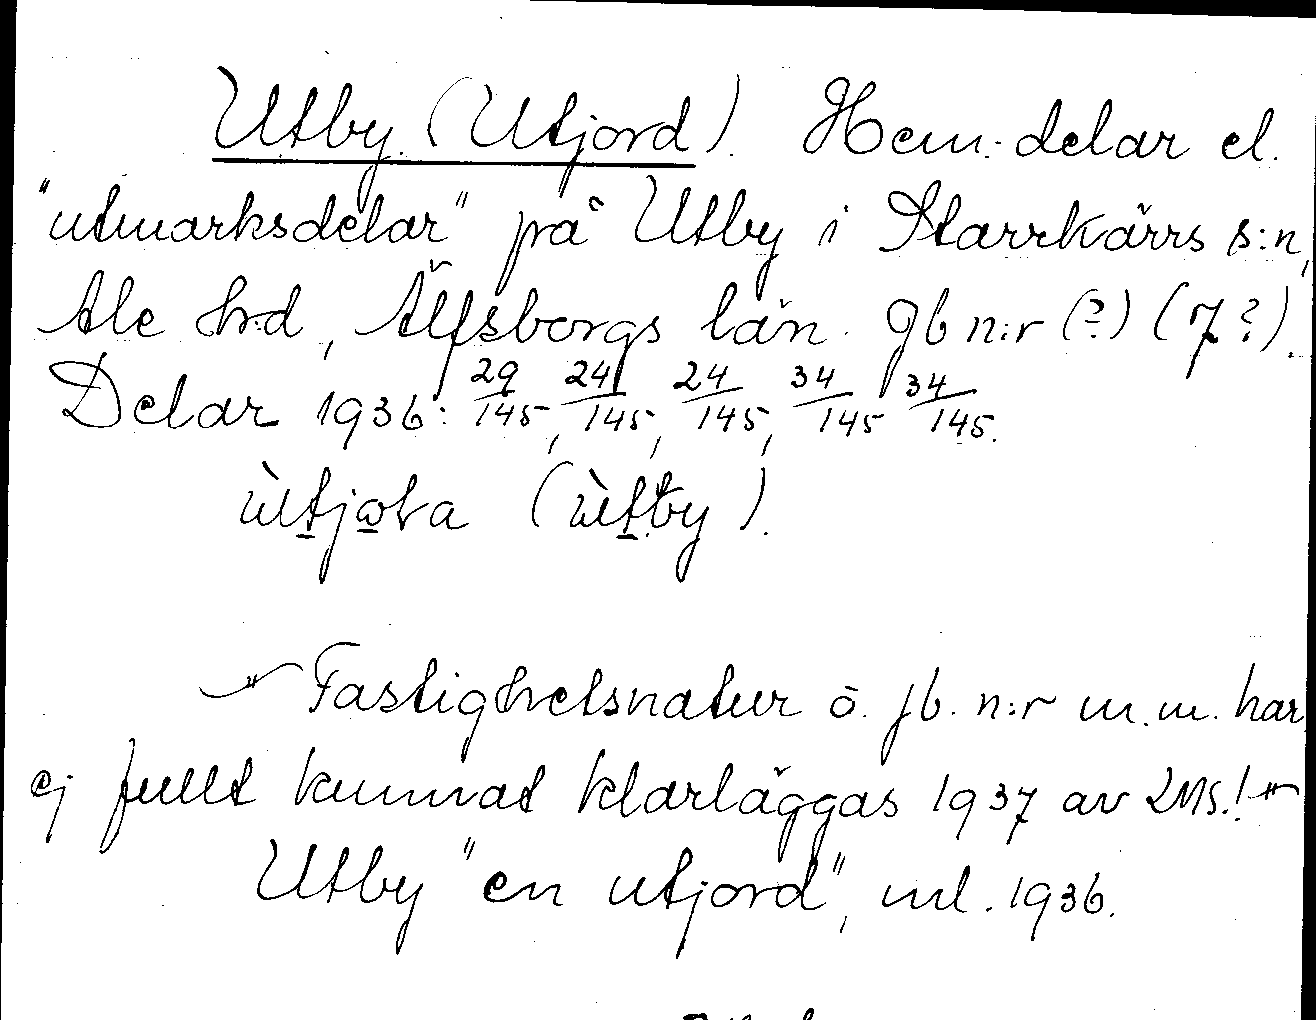 Utby (Utjord). Hem. delar el.
"utmarksdelar" på Utby i Starrkärrs s:n,
Ale hrd, Älfsborgs län. Jb n:r (?) (7?).
Delar 1936: 29/145, 24/145, 24/145, 34/145 34/145.
ùtjoɽa (ùtby).
Fastighetsnatur o. jb. n:r m.m. har
ej fullt kunnat klarläggas 1937 av LMs.!
Utby "en utjord", ml. 1936.